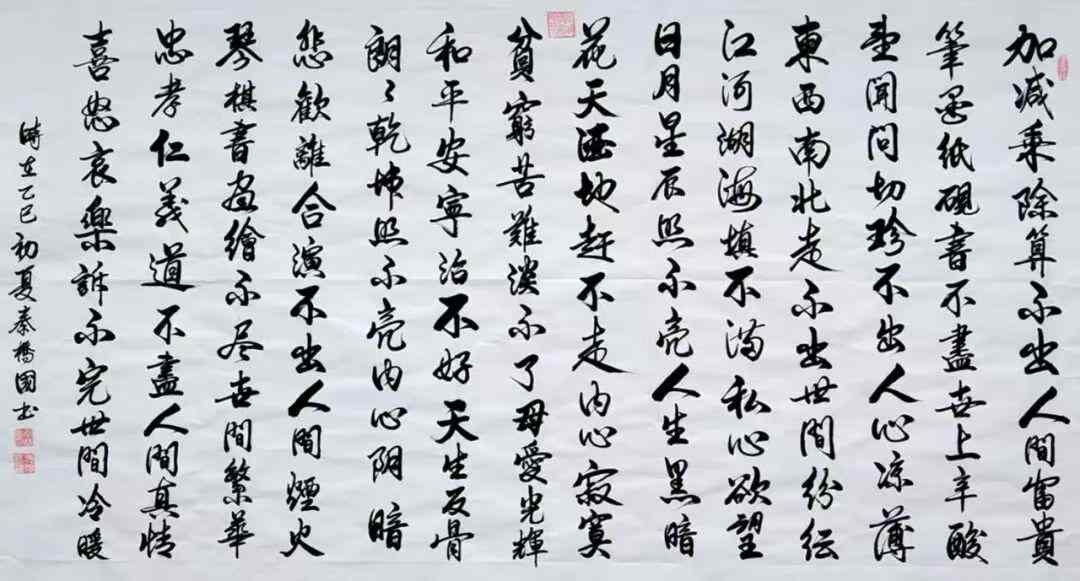 加减乘除算不出人間富貴
筆墨紙硯書不盡世上辛酸
望聞問切珍不出人心凉薄
東西南北走不出世間紛纭
江河湖海填不满私心欲望
日月星辰照不亮人生黑暗
花天酒地赶不走内心寂寞
貧窮苦難淡不了母愛光輝
和平安寧治不好天生反骨
朗々乾坤照不亮内心阴暗
悲歡離合演不出人間煙火
琴棋書画繪不尽世間繁華
忠孝仁義道不盡人間真情
喜怒哀樂訴不完世間冷暖
時在乙巳初夏秦橋國书